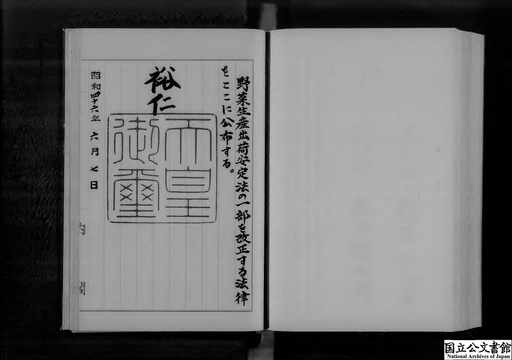 野菜生産出荷安定法の一部を改正する法律
をここに公布する。
裕仁
天皇
御璽
昭和四十六年六月七日
内閣
国立公文書館
National Archives of Japan